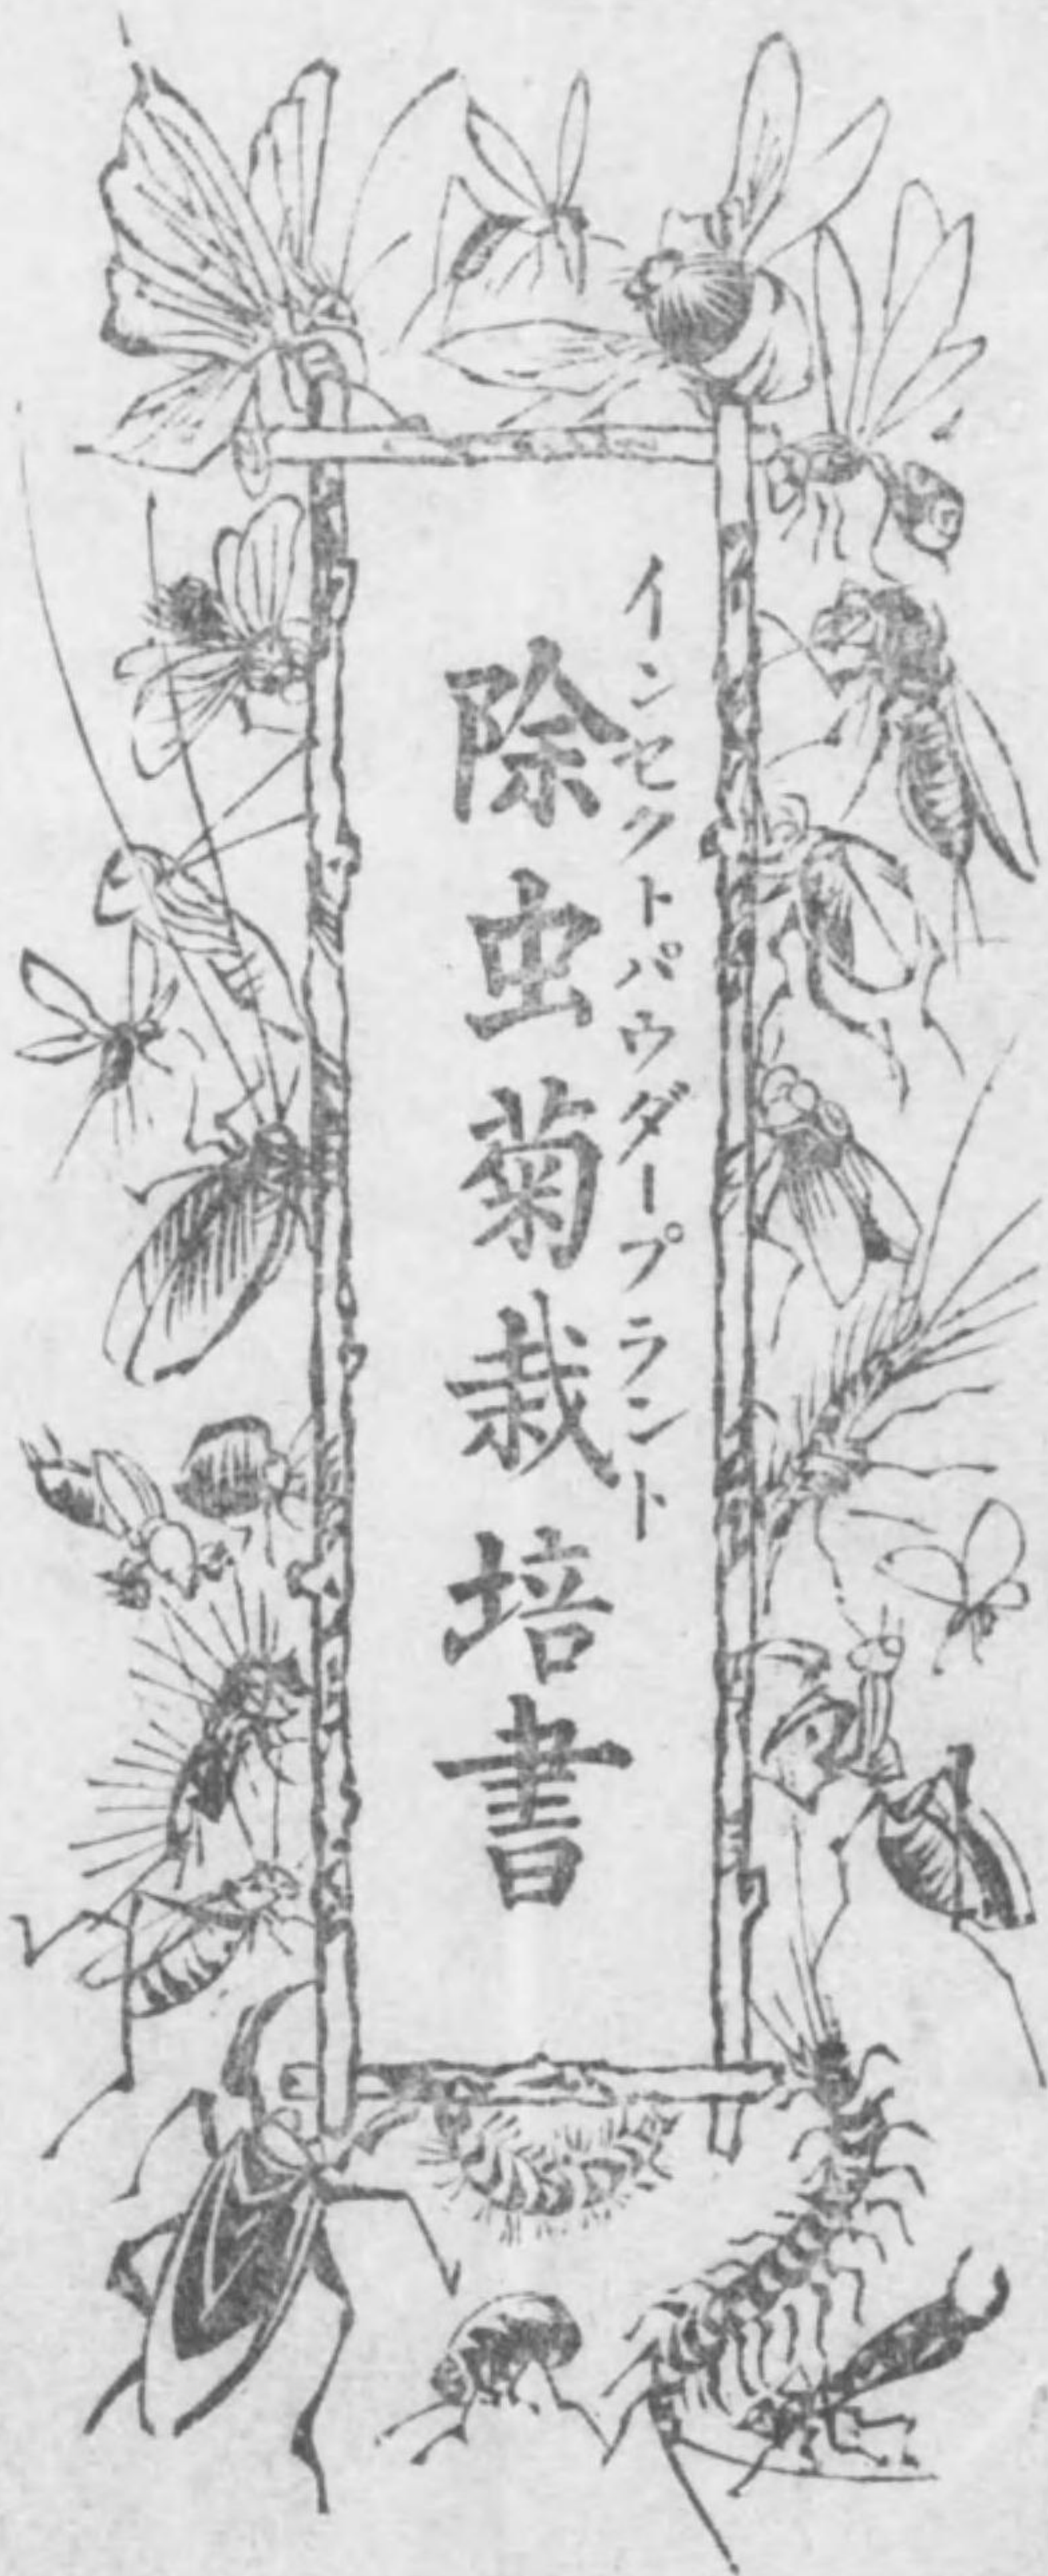 インセクトパウダープラント
除虫菊栽培書